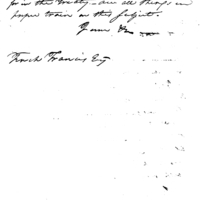 for in the Treaty - are all things in
proper train on this subject.
Yours &c
Tench Francis Esq